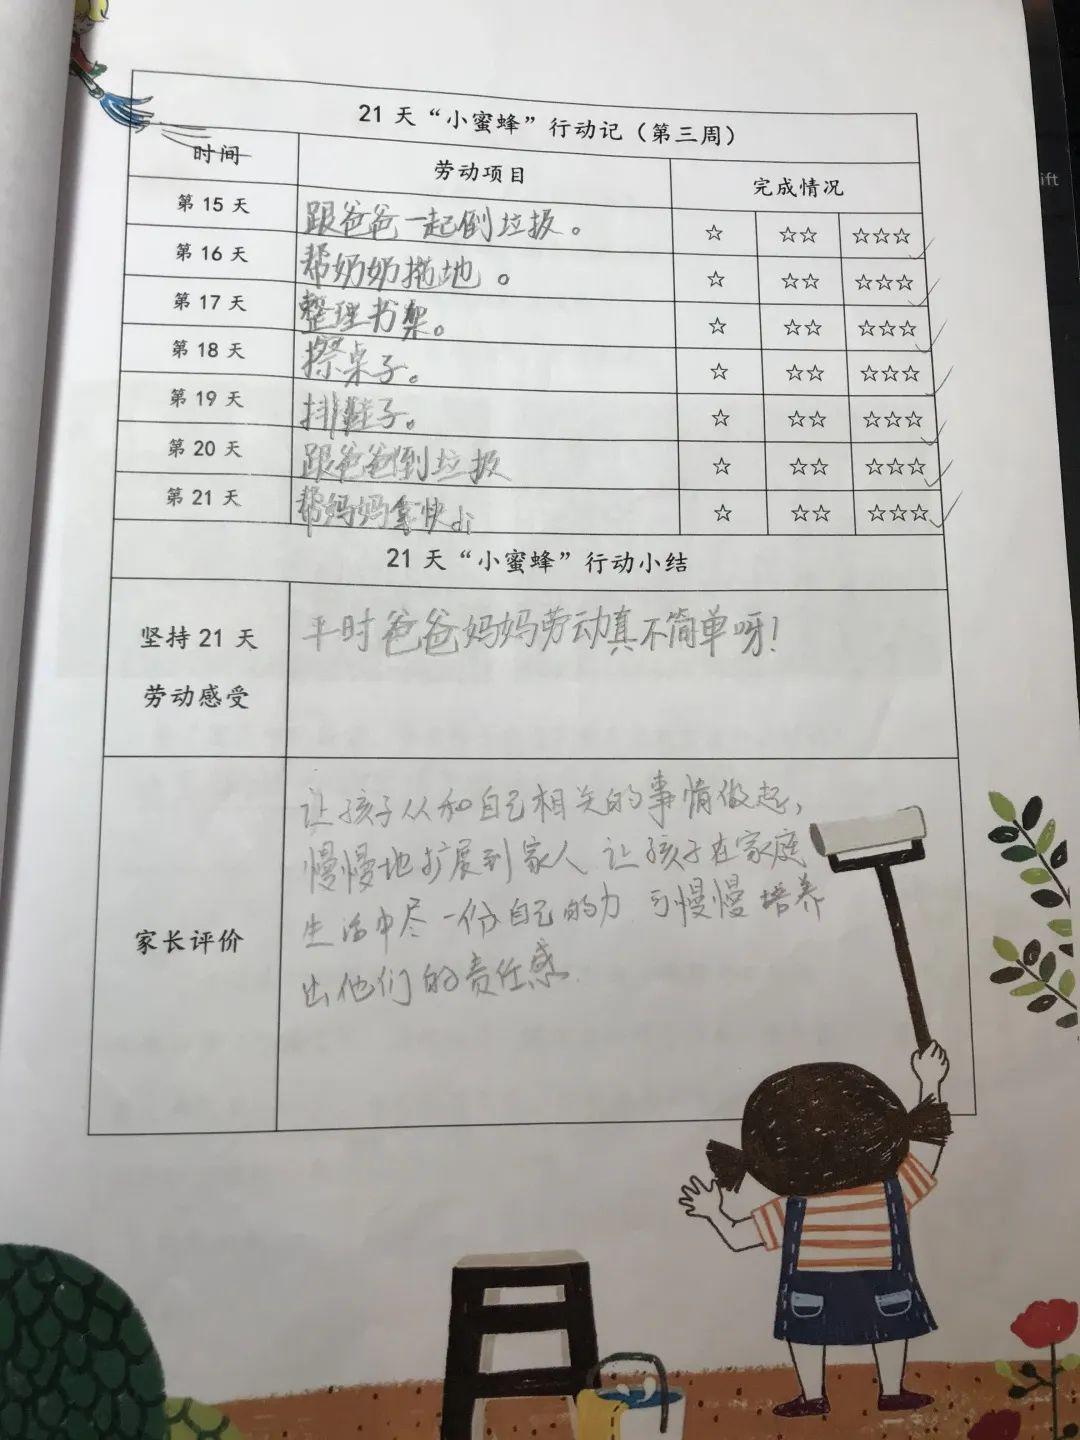 21 天“小蜜蜂”行动记（第三周）
时间 劳动项目 完成情况
第 15 天 跟爸爸一起倒垃圾。 ☆ ☆☆ ☆☆☆ ✓
第 16 天 帮奶奶拖地。 ☆ ☆☆ ☆☆☆ ✓
第 17 天 整理书架。 ☆ ☆☆ ☆☆☆ ✓
第 18 天 擦桌子。 ☆ ☆☆ ☆☆☆ ✓
第 19 天 排鞋子。 ☆ ☆☆ ☆☆☆ ✓
第 20 天 跟爸爸倒垃圾 ☆ ☆☆ ☆☆☆ ✓
第 21 天 帮妈妈拿快di ☆ ☆☆ ☆☆☆ ✓
21 天“小蜜蜂”行动小结
坚持 21 天
劳动感受
平时爸爸妈妈劳动真不简单呀！
家长评价
让孩子从和自己相关的事情做起，
慢慢地扩展到家人 让孩子在家庭
生活中尽一份自己的力 可慢慢培养
出他们的责任感.
ift